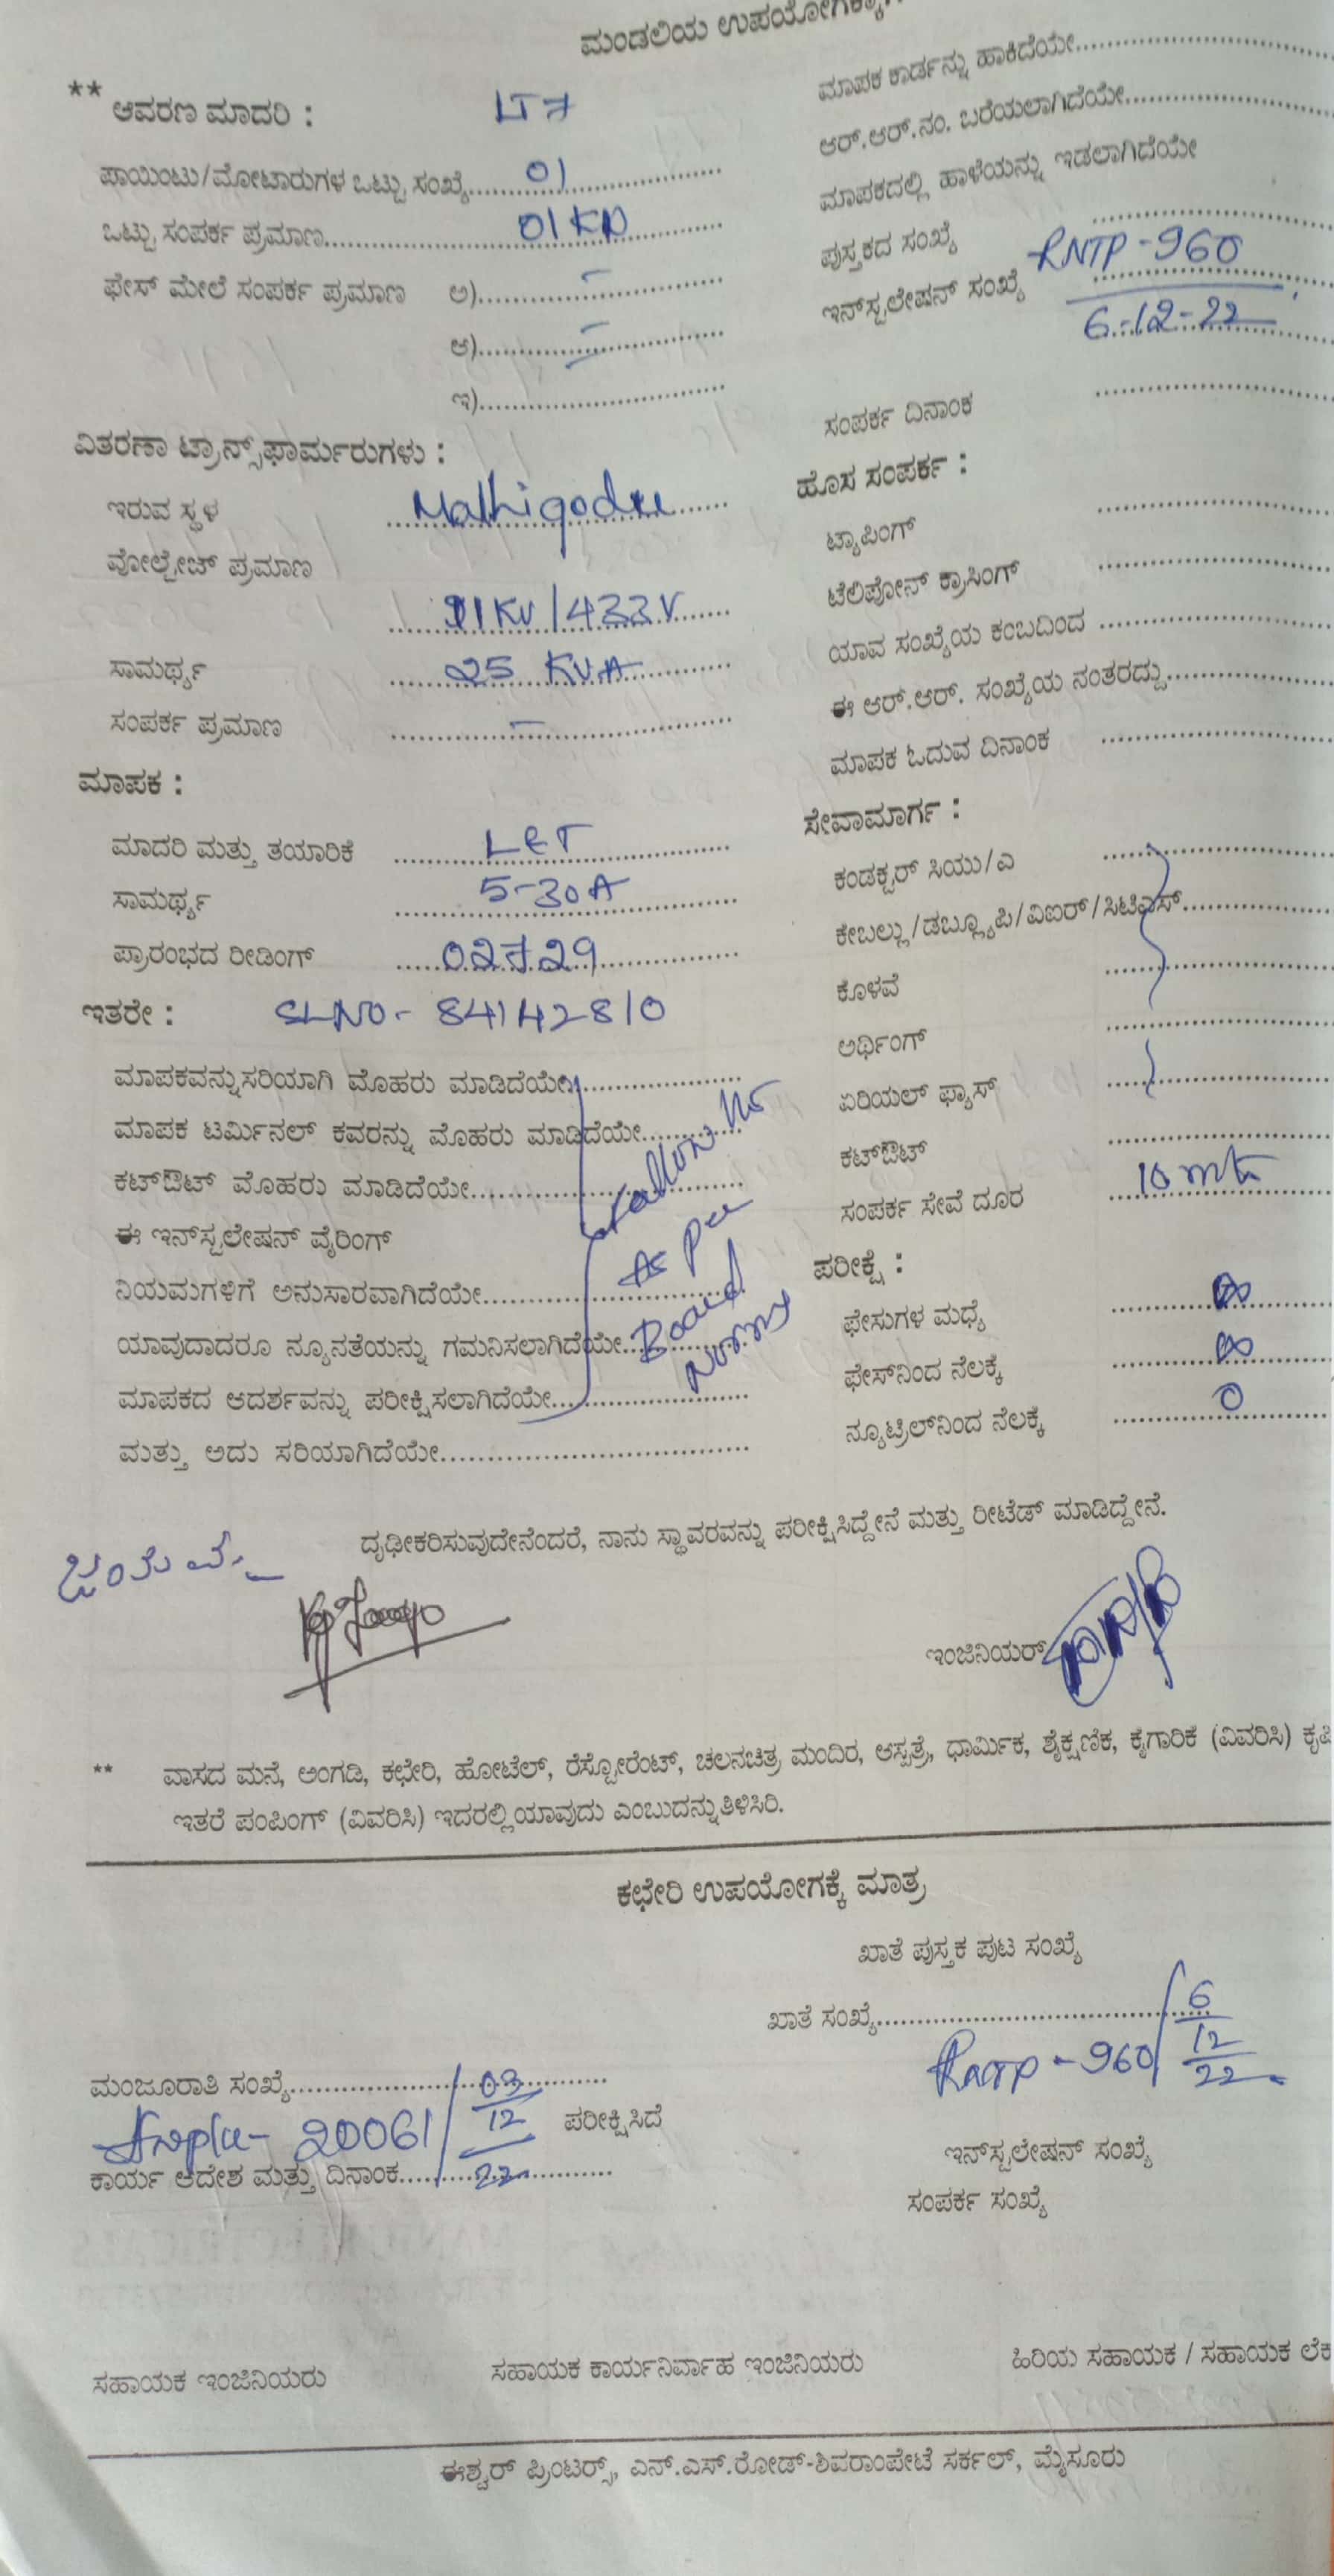 ಮಂಡಲಿಯ
** ಆವರಣ ಮಾದರಿ : LT7
ಪಾಯಿಂಟು/ಮೋಟಾರುಗಳ ಒಟ್ಟು ಸಂಖ್ಯೆ....... 01
ಒಟ್ಟು ಸಂಪರ್ಕ ಪ್ರಮಾಣ....... 01 KW
ಫೇಸ್ ಮೇಲೆ ಸಂಪರ್ಕ ಪ್ರಮಾಣ ಅ)....... –
ಆ)....... –
ಇ).......
ವಿತರಣಾ ಟ್ರಾನ್ಸ್‌ಫಾರ್ಮರುಗಳು :
ಇರುವ ಸ್ಥಳ
ವೋಲ್ಟೇಜ್ ಪ್ರಮಾಣ
11KV/433V
ಸಾಮರ್ಥ್ಯ 25 KVA
ಸಂಪರ್ಕ ಪ್ರಮಾಣ –
ಮಾಪಕ :
ಮಾದರಿ ಮತ್ತು ತಯಾರಿಕೆ L&T
ಸಾಮರ್ಥ್ಯ 5-30A
ಪ್ರಾರಂಭದ ರೀಡಿಂಗ್ 02729
ಇತರೇ : SLNO- 84142810
ಮಾಪಕವನ್ನು ಸರಿಯಾಗಿ ಮೊಹರು ಮಾಡಿದೆಯೇ.......
ಮಾಪಕ ಟರ್ಮಿನಲ್ ಕವರನ್ನು ಮೊಹರು ಮಾಡಿದೆಯೇ.......
ಕಟ್‌ಔಟ್ ಮೊಹರು ಮಾಡಿದೆಯೇ.......
ಈ ಇನ್‌ಸ್ಟಲೇಷನ್ ವೈರಿಂಗ್
ನಿಯಮಗಳಿಗೆ ಅನುಸಾರವಾಗಿದೆಯೇ.......
ಯಾವುದಾದರೂ ನ್ಯೂನತೆಯನ್ನು ಗಮನಿಸಲಾಗಿದೆಯೇ.......
ಮಾಪಕದ ಆದರ್ಶವನ್ನು ಪರೀಕ್ಷಿಸಲಾಗಿದೆಯೇ.......
ಮತ್ತು ಅದು ಸರಿಯಾಗಿದೆಯೇ.......
As per
Board
Norms
ಮಾಪಕ ಕಾರ್ಡನ್ನು ಹಾಕಿದೆಯೇ.......
ಆರ್.ಆರ್.ನಂ. ಬರೆಯಲಾಗಿದೆಯೇ.......
ಮಾಪಕದಲ್ಲಿ ಹಾಳೆಯನ್ನು ಇಡಲಾಗಿದೆಯೇ
ಪುಸ್ತಕದ ಸಂಖ್ಯೆ
ಇನ್‌ಸ್ಟಲೇಷನ್ ಸಂಖ್ಯೆ RNTP-960
6-12-22
ಸಂಪರ್ಕ ದಿನಾಂಕ
ಹೊಸ ಸಂಪರ್ಕ :
ಟ್ಯಾಪಿಂಗ್
ಟೆಲಿಪೋನ್ ಕ್ರಾಸಿಂಗ್
ಯಾವ ಸಂಖ್ಯೆಯ ಕಂಬದಿಂದ
ಈ ಆರ್.ಆರ್. ಸಂಖ್ಯೆಯ ನಂತರದ್ದು.......
ಮಾಪಕ ಓದುವ ದಿನಾಂಕ
ಸೇವಾಮಾರ್ಗ :
ಕಂಡಕ್ಟರ್ ಸಿಯು/ಎ
ಕೇಬಲ್ಲು/ಡಬ್ಲ್ಯೂಪಿ/ವಿಐರ್/ಸಿಟಿಎಸ್.......
ಕೊಳವೆ
ಅರ್ಥಿಂಗ್
ಏರಿಯಲ್ ಫ್ಯಾಸ್
ಕಟ್‌ಔಟ್
ಸಂಪರ್ಕ ಸೇವೆ ದೂರ 10 mt
ಪರೀಕ್ಷೆ :
ಫೇಸುಗಳ ಮಧ್ಯೆ ∞
ಫೇಸ್‌ನಿಂದ ನೆಲಕ್ಕೆ ∞
ನ್ಯೂಟ್ರಿಲ್‌ನಿಂದ ನೆಲಕ್ಕೆ 0
ದೃಢೀಕರಿಸುವುದೇನೆಂದರೆ, ನಾನು ಸ್ಥಾವರವನ್ನು ಪರೀಕ್ಷಿಸಿದ್ದೇನೆ ಮತ್ತು ರೀಟೆಡ್ ಮಾಡಿದ್ದೇನೆ.
ಇಂಜಿನಿಯರ್
** ವಾಸದ ಮನೆ, ಅಂಗಡಿ, ಕಛೇರಿ, ಹೋಟೆಲ್, ರೆಸ್ಟೋರೆಂಟ್, ಚಲನಚಿತ್ರ ಮಂದಿರ, ಆಸ್ಪತ್ರೆ, ಧಾರ್ಮಿಕ, ಶೈಕ್ಷಣಿಕ, ಕೈಗಾರಿಕೆ (ವಿವರಿಸಿ)
ಇತರೆ ಪಂಪಿಂಗ್ (ವಿವರಿಸಿ) ಇದರಲ್ಲಿ ಯಾವುದು ಎಂಬುದನ್ನು ತಿಳಿಸಿರಿ.
ಕಛೇರಿ ಉಪಯೋಗಕ್ಕೆ ಮಾತ್ರ
ಖಾತೆ ಪುಸ್ತಕ ಪುಟ ಸಂಖ್ಯೆ
ಖಾತೆ ಸಂಖ್ಯೆ.......
RNTP-960/ 6/12/22
ಮಂಜೂರಾತಿ ಸಂಖ್ಯೆ.......
20061/ 03/12/22 ಪರೀಕ್ಷಿಸಿದೆ
ಕಾರ್ಯ ಆದೇಶ ಮತ್ತು ದಿನಾಂಕ.......
ಇನ್‌ಸ್ಟಲೇಷನ್ ಸಂಖ್ಯೆ
ಸಂಪರ್ಕ ಸಂಖ್ಯೆ
ಸಹಾಯಕ ಇಂಜಿನಿಯರು ಸಹಾಯಕ ಕಾರ್ಯನಿರ್ವಾಹ ಇಂಜಿನಿಯರು ಹಿರಿಯ ಸಹಾಯಕ / ಸಹಾಯಕ
ಈಶ್ವರ್ ಪ್ರಿಂಟರ್ಸ್, ಎನ್.ಎಸ್.ರೋಡ್-ಶಿವರಾಂಪೇಟೆ ಸರ್ಕಲ್, ಮೈಸೂರು